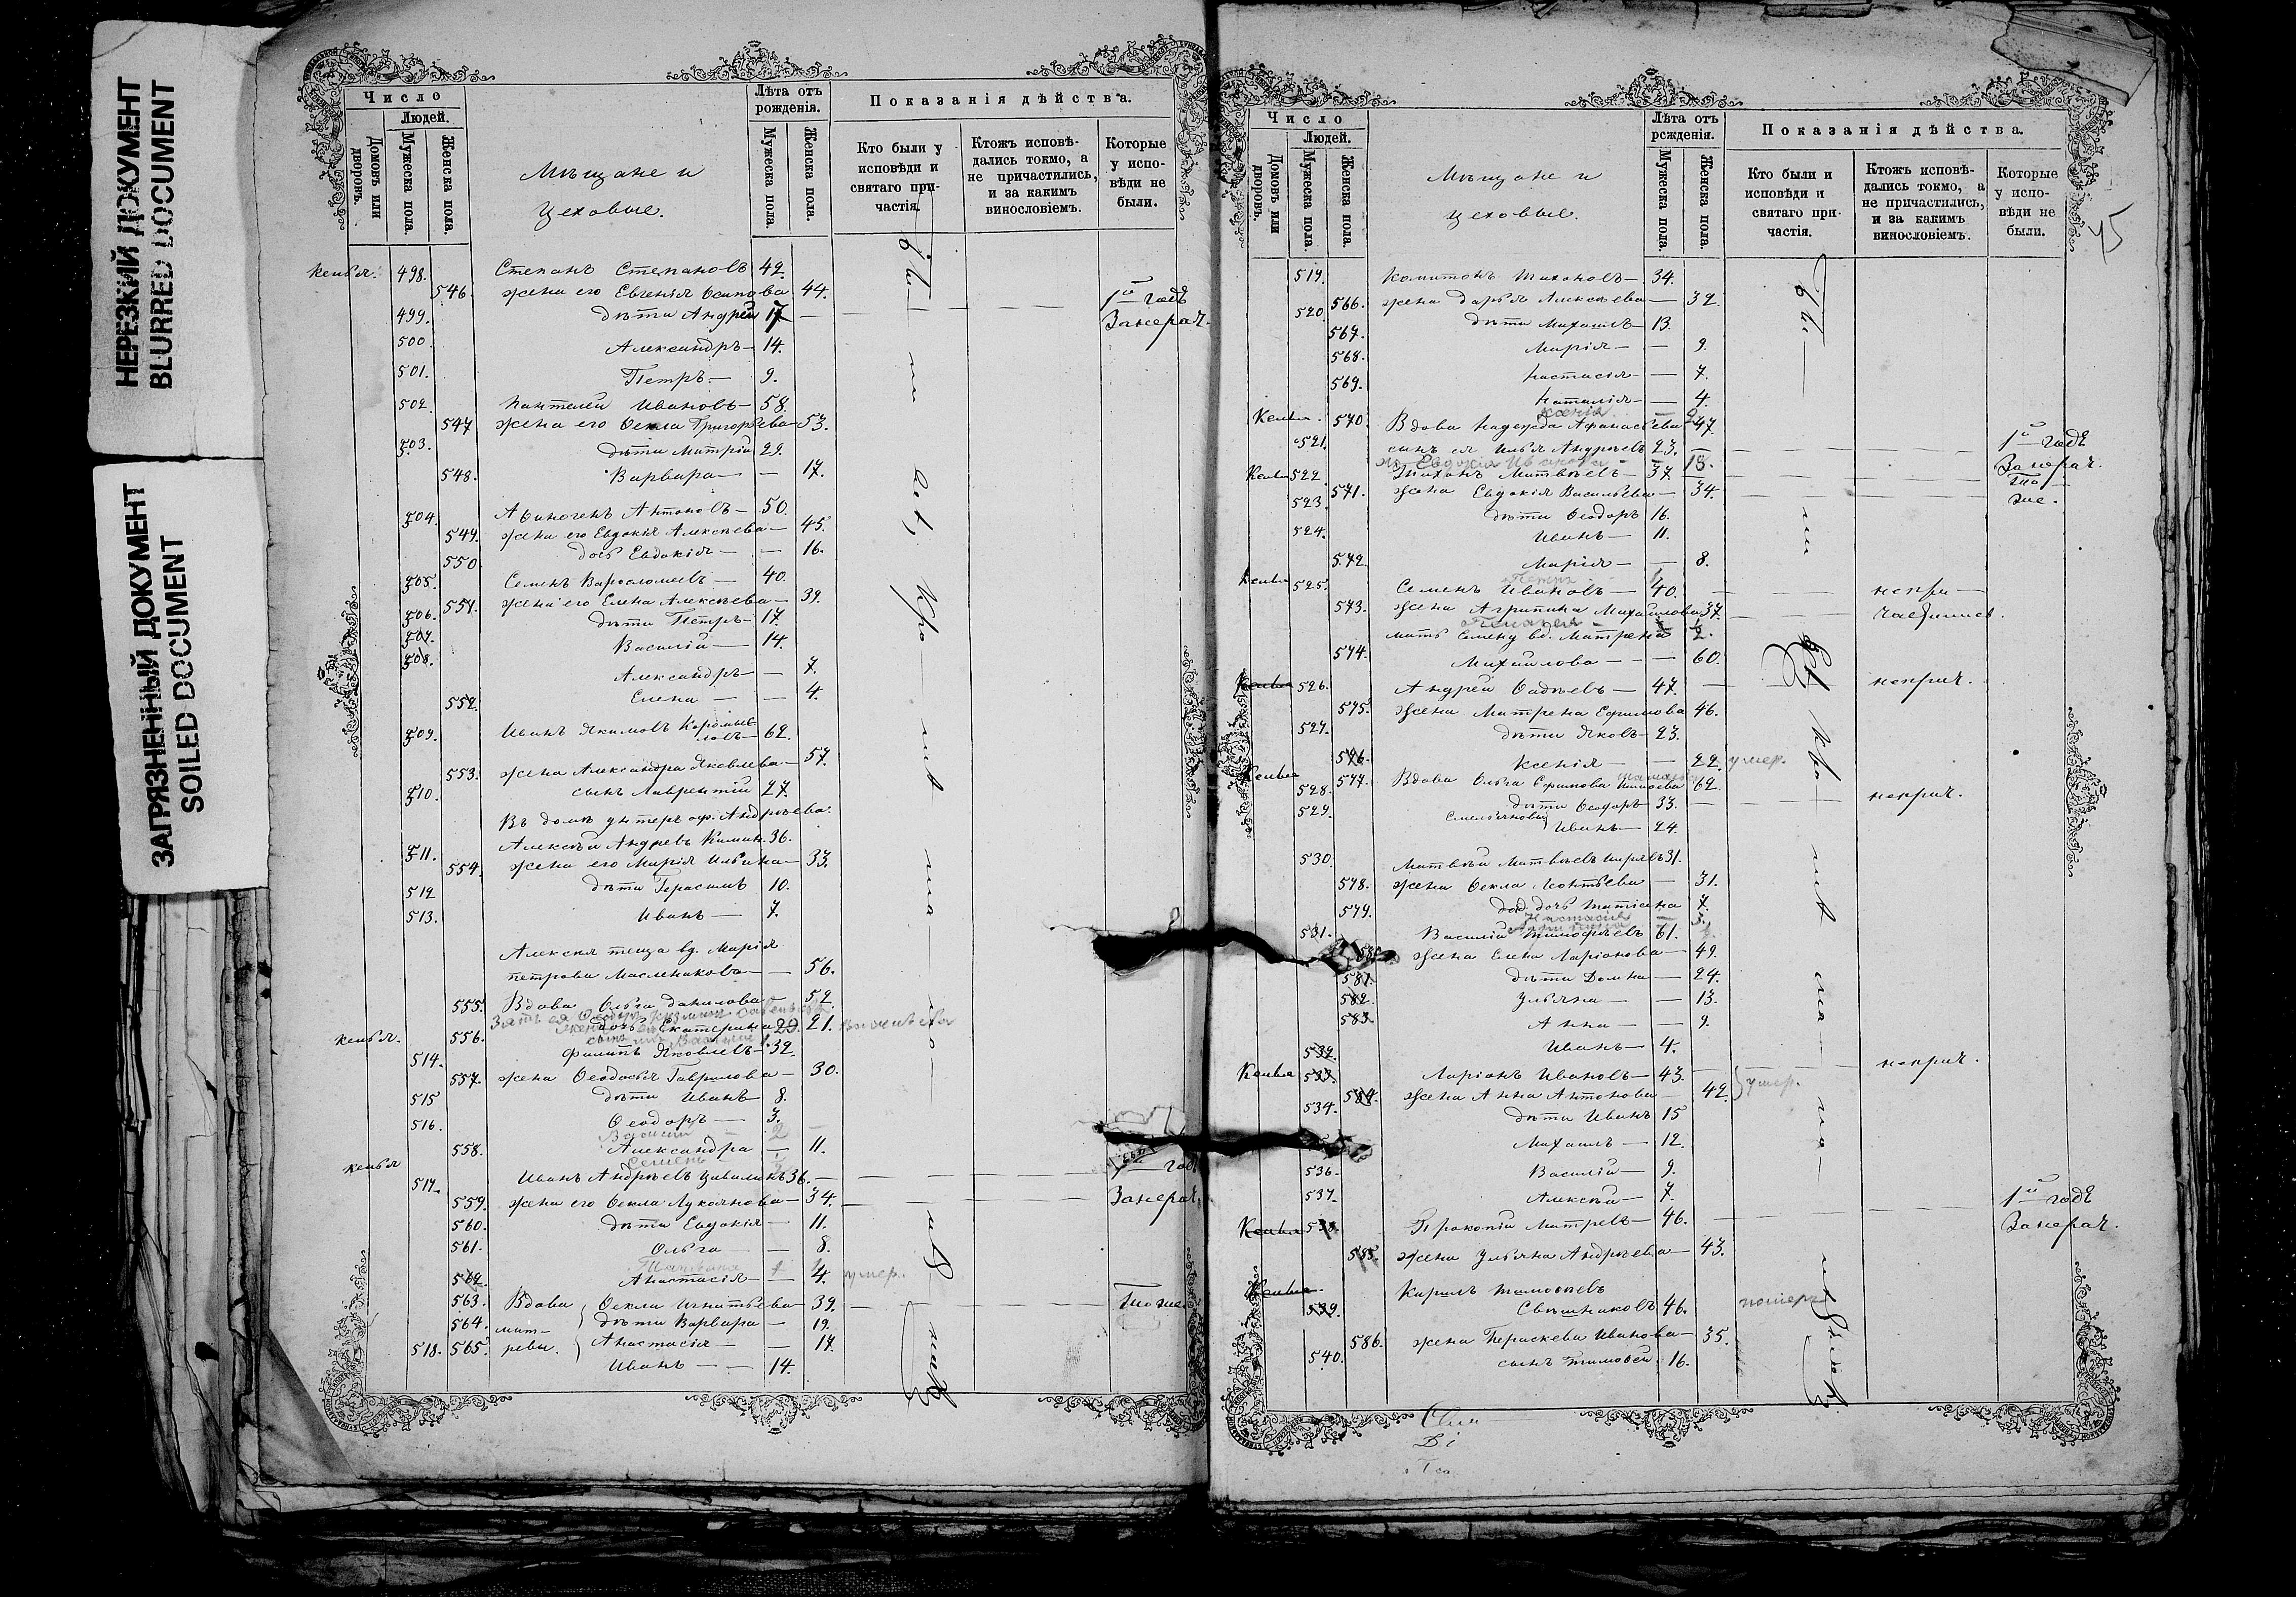 НЕРЕЗКИЙ ДОКУМЕНТ
BLURRED DOCUMENT
ЗАГРЯЗНЕННЫЙ ДОКУМЕНТ
SOILED DOCUMENT
Число
Людей.
Домовъ или дворовъ.
Мужеска пола.
Женска пола.
Мѣщане и
цеховые.
Лѣта отъ рожденія.
Мужеска пола.
Женска пола.
Показанія дѣйства.
Кто были у исповѣди и святаго причастія.
Ктожъ исповѣдались токмо, а не причастились, и за какимъ винословіемъ.
Которые у исповѣди не были.
498. Степанъ Степановъ 42.
546. жена его Евгенія Осипова 44.
499. дѣти Андрей 17 — 1й годъ Занерач.
500. Александръ — 14.
501. Петръ — 9.
502. Пантелей Ивановъ — 58.
547 жена его Ѳекла Григорьева — 53.
503. дѣти Митрій 29.
548. Варвара — 17.
504. Аѳиногенъ Антоновъ — 50.
549. жена его Евдокія Алексѣева — 45.
550 дочь Евдокія — 16.
505. Семенъ Варѳоломеевъ — 40.
551. жена его Елена Алексѣева — 39.
506. дѣти Петръ — 17.
507. Василій — 14.
508. Александръ — 7.
552. Елена — 4.
509. Иванъ Якимовъ 62.
553. жена Александра Яковлева — 57.
510. сынъ Лаврентій 27.
Въ домѣ унтеръ оф. Андрѣева.
511. Алексѣй Андрѣевъ 36.
554. жена его Марія Ильина — 33.
512 дѣти Герасимъ 10.
513. Иванъ — 7.
Алексѣя теща вд. Марія
Петрова Масленикова — 56.
555. Вдова Ольга Данилова — 52
556. дочь Екатерина 21.
514. Филипъ Яковлевъ — 32.
557. жена Ѳеодосія Гаврилова — 30.
515 дѣти Иванъ 8.
516. Ѳеодоръ — 3.
Василій 2
558. Александра — 11.
Семенъ
517. Иванъ Андрѣевъ 36. — 1й годъ
559. жена его Ѳекла Лукоянова — 34. — Занерач.
560. дѣти Евдокія — 11.
561. Ольга — 8.
Татьяна 1
562. Анастасія — 4. умер.
563. Вдова Ѳекла Игнатьева — 39. — Тоже
564. дѣти Варвара — 19.
518. 565. Анастасія — 17.
Иванъ — 14.
Число
Людей.
Домовъ или дворовъ.
Мужеска пола.
Женска пола.
Мѣщане и
цеховые.
Лѣта отъ рожденія.
Мужеска пола.
Женска пола.
Показанія дѣйства.
Кто были и исповѣди и святаго причастія.
Ктожъ исповѣдались токмо, а не причастились, и за какимъ винословіемъ.
Которые у исповѣди не были.
45
519. Тихоновъ — 34.
566. жена Дарья Алексѣева — 32.
520 дѣти Михаилъ — 13.
567. Марія — 9.
568. Настасія — 7.
569. Наталія — 4.
Ксенія 2
570. Вдова Надежда Афанасьева 47.
521. сынъ ея Илья Андрѣевъ 23. — 1й годъ Занерач.
ж. Евдокія Иванова 18.
522. Тиханъ Матвѣевъ — 37. — то же.
571. жена Евдокія Васильева — 34.
523. дѣти Ѳеодоръ 16.
524. Иванъ — 11.
572. Марія — 8.
525. Семенъ Ивановъ — 40. — непри-
573. жена Агрипина Михайлова 37. — частились.
мать Семену вд. Матрена
574. Михайлова — 60.
526. Андрей Ѳадѣевъ — 47. — неприч.
575. жена Матрена Ефимова 46.
527. дѣти Яковъ — 23.
576. Ксенія — 22. умер.
577. Вдова Ольга Ефимова 62
528. дѣти Ѳеодоръ 33. — неприч.
529. Иванъ — 24.
530. Матвѣй Матвѣевъ 31.
578. жена Ѳекла Леонтьева — 31.
579. дочь Татіана 7.
Настасія
531. Василій Тимофѣевъ 61.
жена Елена Ларіонова — 49.
581. дѣти Домна — 24.
582. Ульяна — 13.
583. Анна — 9.
532. Иванъ — 4.
533. Ларіонъ Ивановъ — 43. — неприч.
584. жена Анна Антонова 42. умер.
534. дѣти Иванъ 15
Михаилъ — 12.
536. Василій — 9.
537. Алексѣй — 7.
538. Прокопій Митревъ — 46. — 1й годъ Занерач.
585. жена Ульяна Андрѣева — 43.
Кирилъ Тимоѳеевъ
539. Свѣшниковъ 46.
586. жена Параскева Иванова — 35.
540. сынъ Тимоѳей 16.